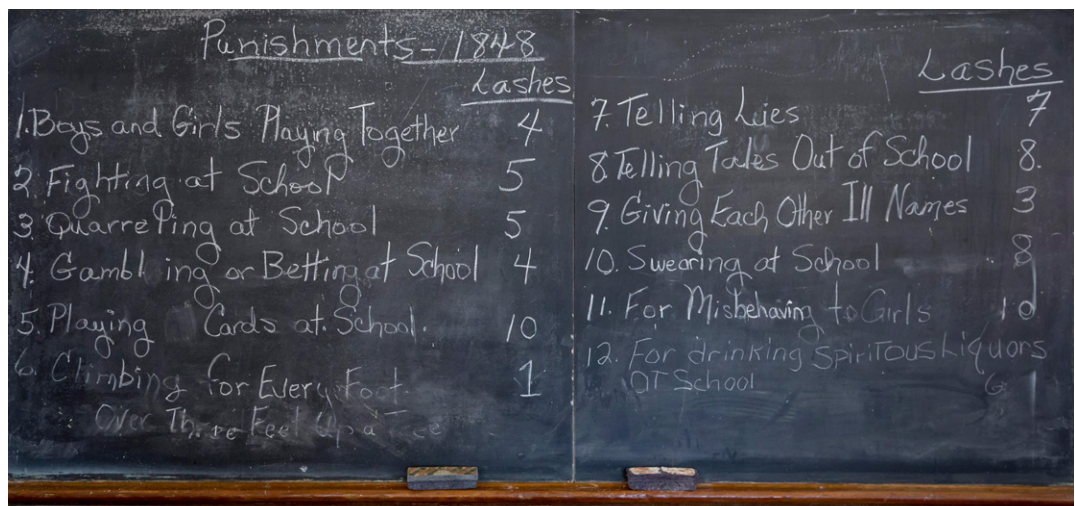 Punishments - 1848
Lashes
1. Boys and Girls Playing Together 4
2. Fighting at School 5
3. Quarreling at School 5
4. Gambling or Betting at School 4
5. Playing Cards at School. 10
6. Climbing for Every Foot 1
Over Three Feet Up a
Lashes
7. Telling Lies 7
8. Telling Tales Out of School 8.
9. Giving Each Other Ill Names 3
10. Swearing at School 8
11. For Misbehaving to Girls 10
12. For drinking Spiritous Liquors
at School